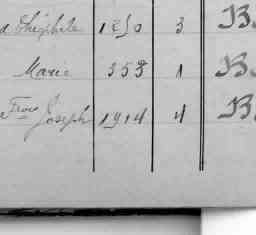 d Théophile 1850 3 B
Marie 353 1 B
Frois
Joseph 1914 4 B